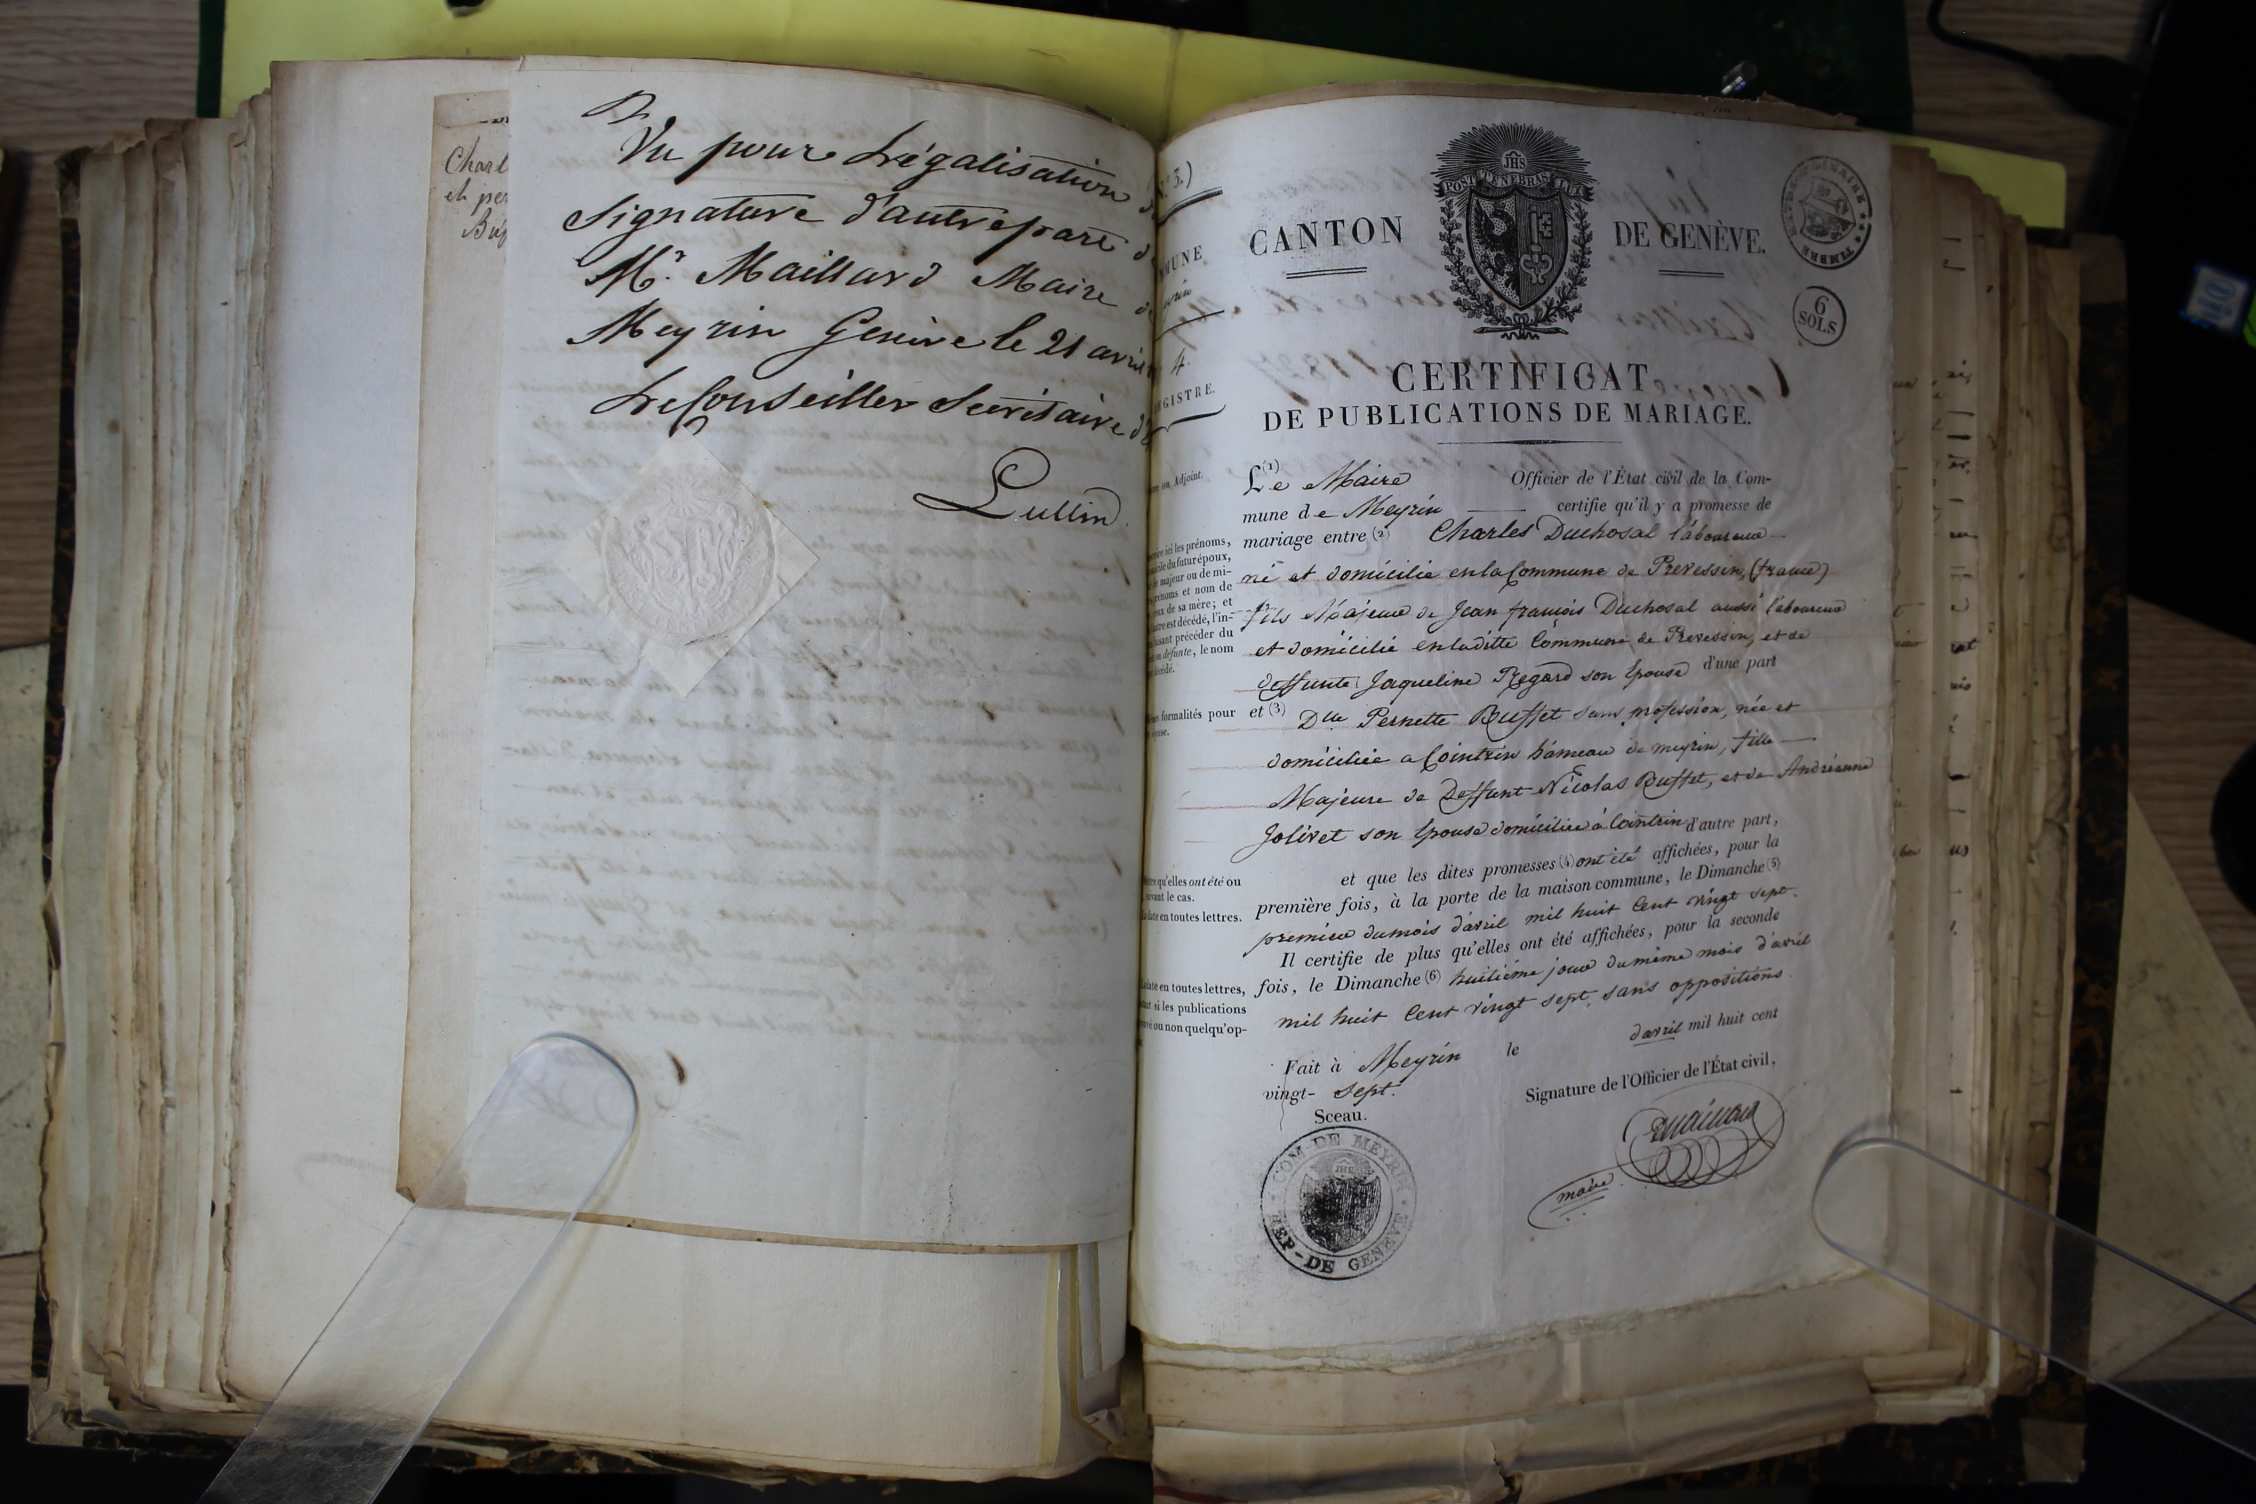 Charl
et per
Buf
Vu pour Légalisation d
Signature d'autrepart d
Mr. Maillard Maire de
Meyrin Genève le 21 avril
Le Conseiller Secrétaire d'E
Lullin
No 3.)
MUNE
4.
GISTRE.
ou Adjoint.
ici les prénoms,
du futur époux,
majeur ou de mi-
prénoms et nom de
de sa mère; et
est décédé, l'in-
faisant précéder du
defunte, le nom
décédé.
formalités pour
qu'elles ont été ou
suivant le cas.
date en toutes lettres.
date en toutes lettres,
si les publications
ou non quelqu'op-
JHS
POST TENEBRAS LUX
CANTON DE GENÈVE.
TIMBRE
6
SOLS
CERTIFICAT
DE PUBLICATIONS DE MARIAGE.
Le (1) Maire Officier de l'État civil de la Com-
mune de Meyrin certifie qu'il y a promesse de
mariage entre (2) Charles Duchosal laboureur
né et domicilié en la Commune de Prevessin, (france)
fils Majeur de Jean françois Duchosal aussi laboureur
et domicilié en la ditte Commune de Prevessin, et de
deffunte Jaqueline Regard son Epouse d'une part
et (3) Dlle Pernette Buffet sans profession, née et
domiciliée a Cointrin hameau de meyrin, fille
Majeure de Deffunt Nicolas Buffet, et de Andréanne
Jolivet son Epouse domiciliée à Cointrin d'autre part,
et que les dites promesses (4) ont été affichées, pour la
première fois, à la porte de la maison commune, le Dimanche (5)
premier du mois d'avril mil huit Cent vingt sept.
Il certifie de plus qu'elles ont été affichées, pour la seconde
fois, le Dimanche (6) huitième jour du même mois d'avril
mil huit Cent vingt sept, sans oppositions.
Fait à Meyrin le d'avril mil huit cent
vingt- sept.
Signature de l'Officier de l'État civil,
Sceau.
Maillard
maire
COM. DE MEYRIN
JHS
REP. DE GENEVE